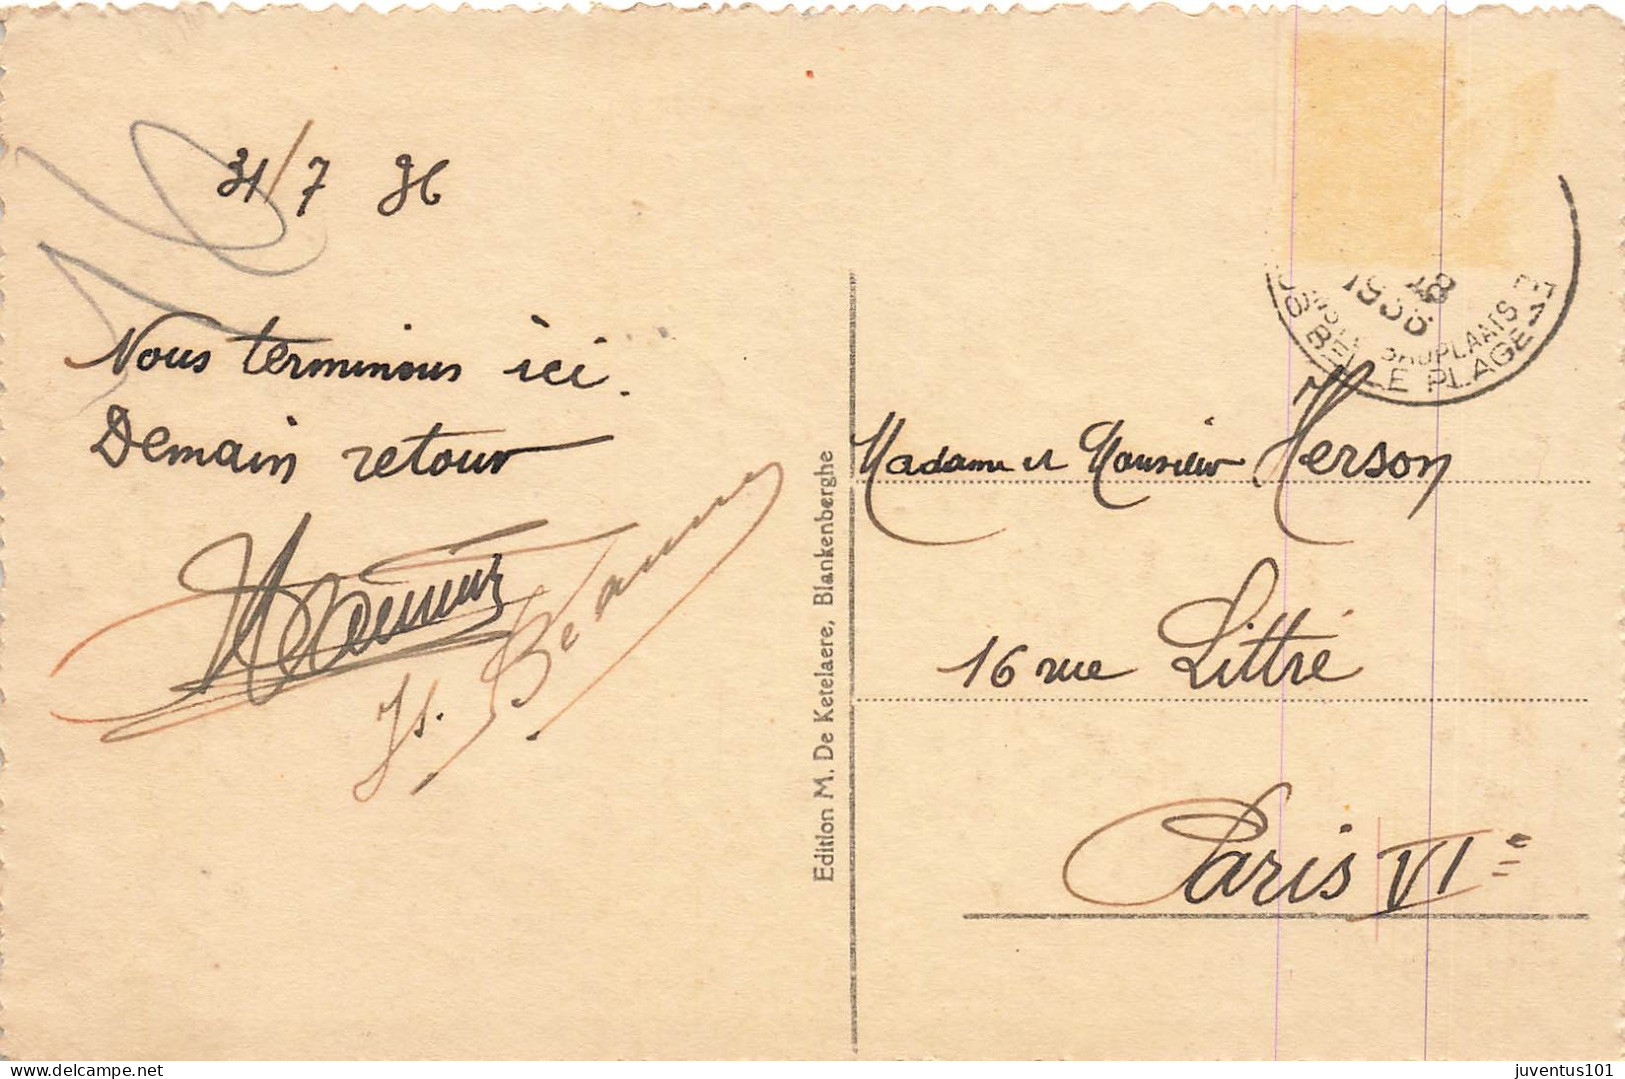 31/7 36
Nous terminons ici.
Demain retour
Edition M. De Ketelaere, Blankenberghe
1936
BADPLAATS
BELLE PLAGE
Madame et Monsieur Herson
16 rue Littré
Paris VIe
juventus101